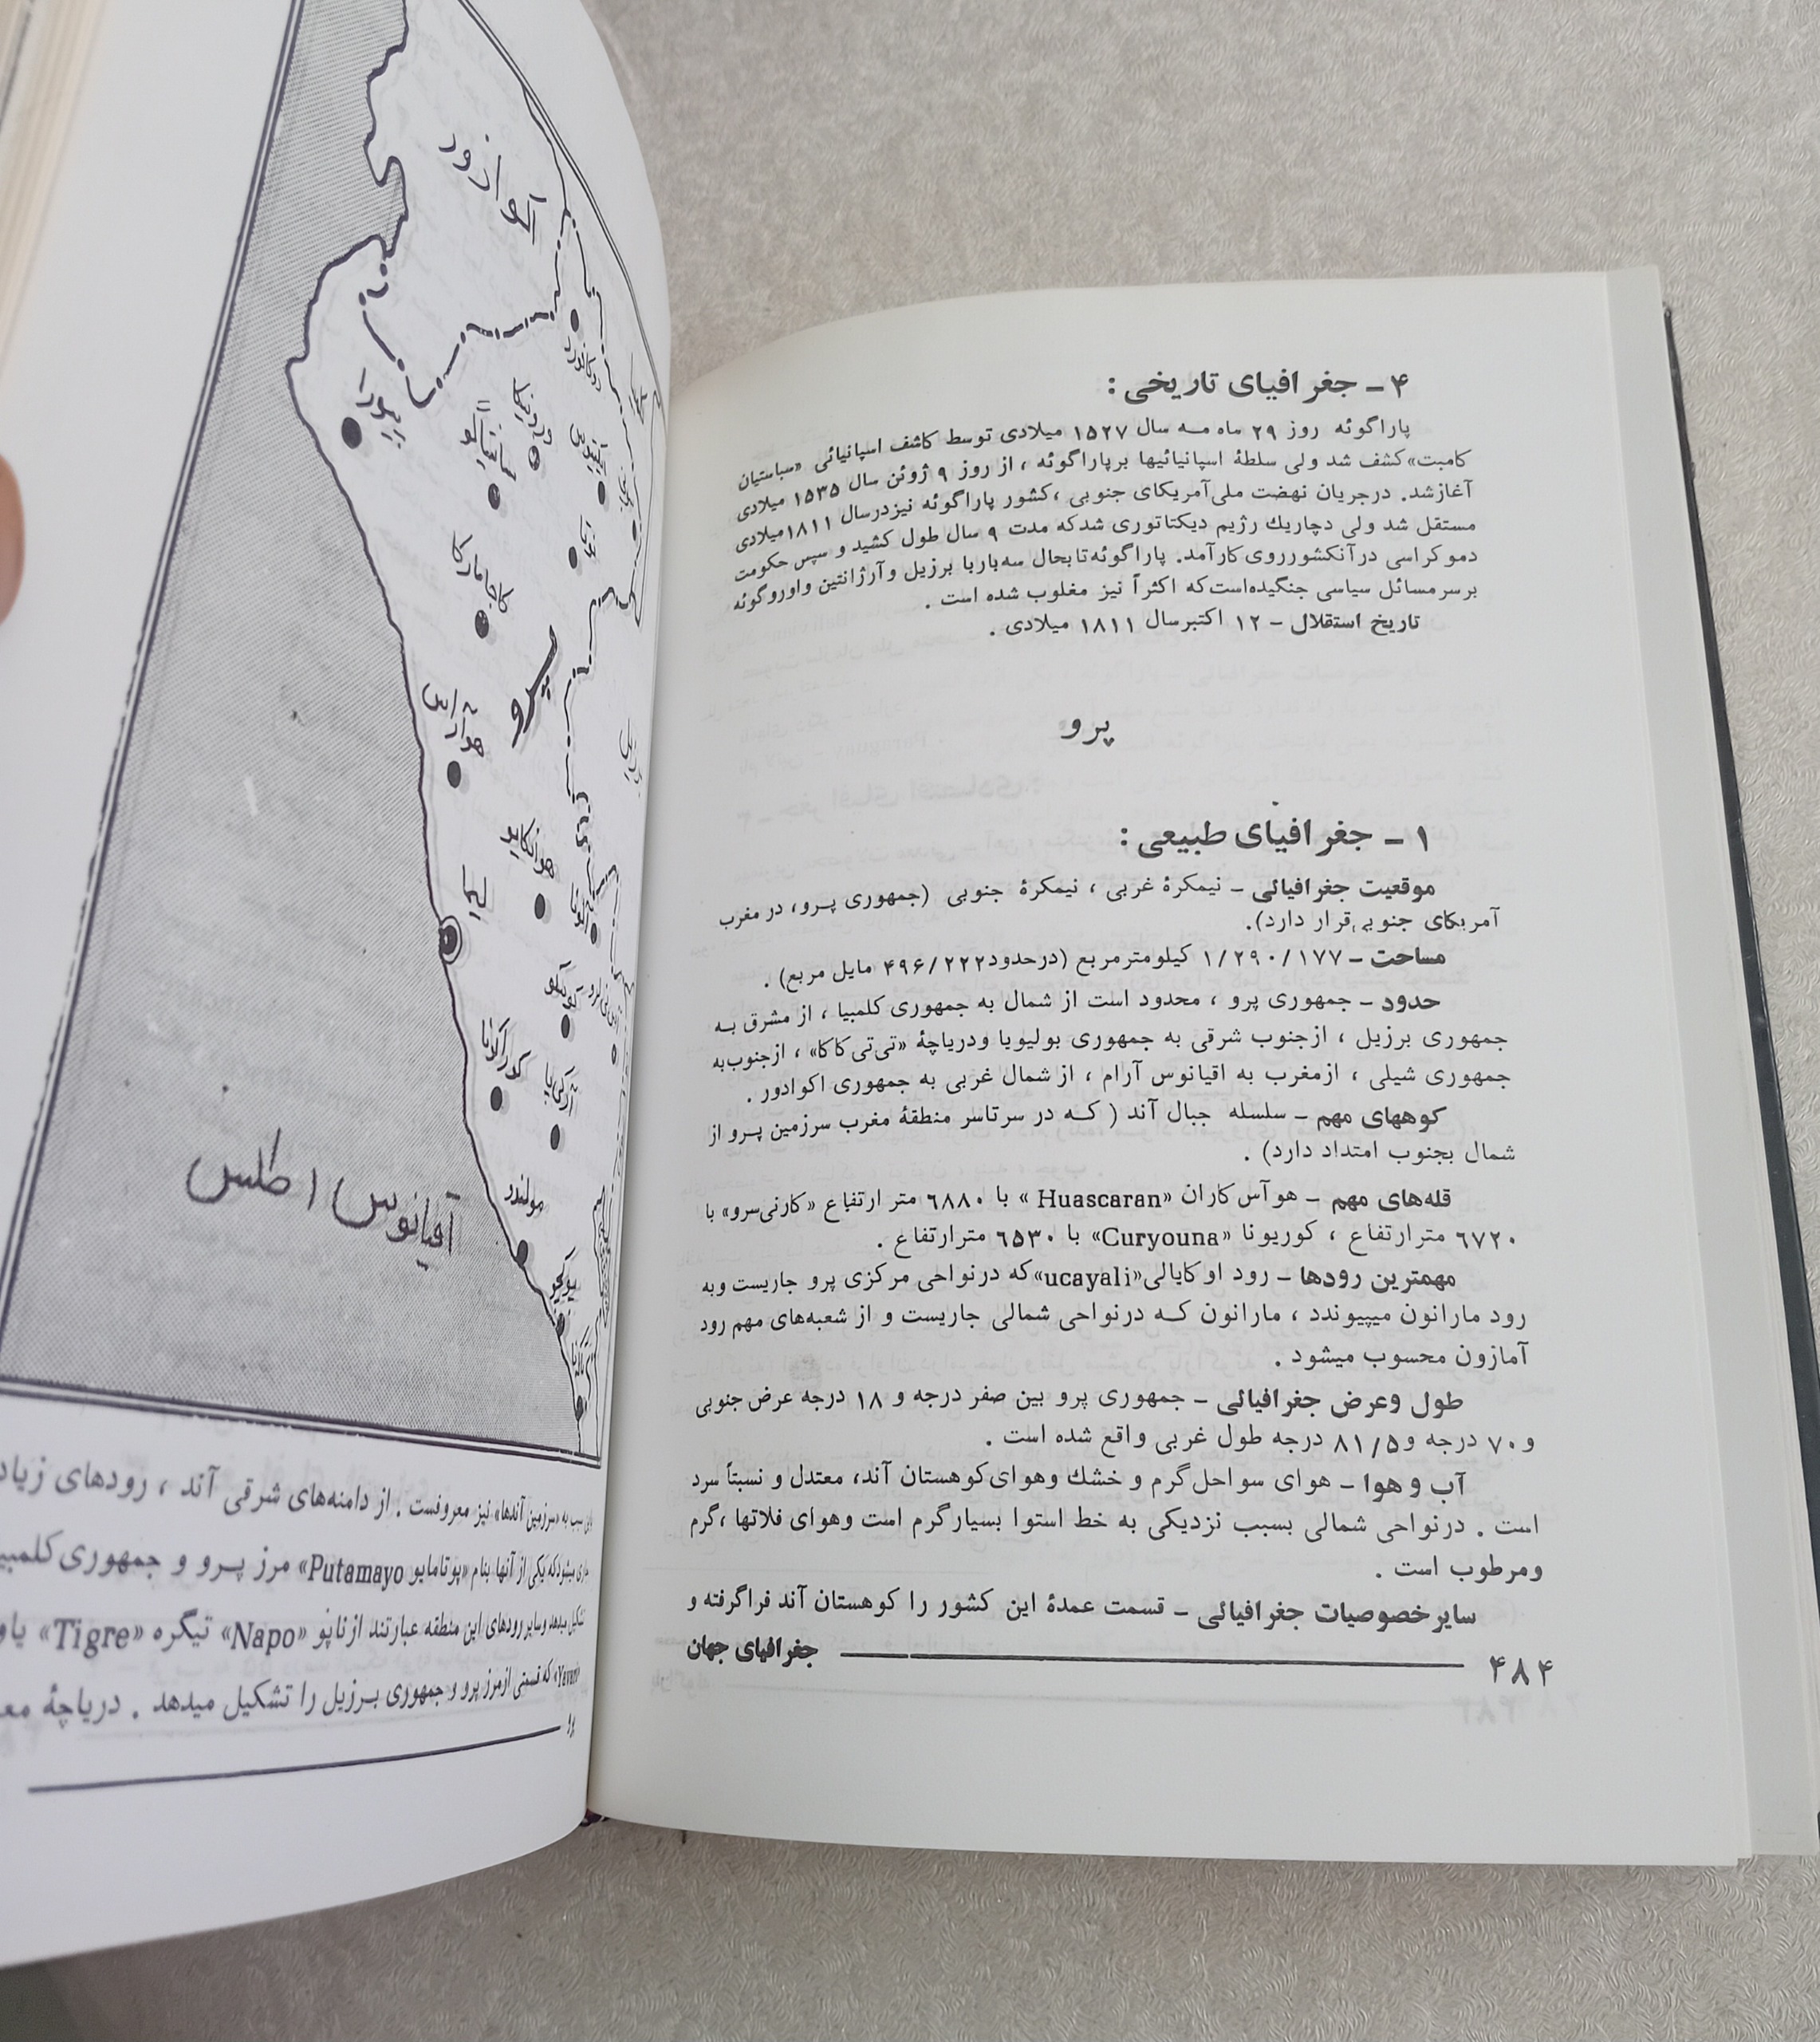 ۴ ــ جغرافیای تاریخی :
پاراگوئه روز ۲۹ ماه مـه سال ۱۵۲۷ میلادی توسط کاشف اسپانیائی «سباستیان
کامبت» کشف شد ولی سلطهٔ اسپانیائیها برپاراگوئه ، از روز ۹ ژوئن سال ۱۵۳۵ میلادی
آغاز شد. درجریان نهضت ملی آمریکای جنوبی ، کشور پاراگوئه نیز درسال ۱۸۱۱ میلادی
مستقل شد ولی دچاریك رژیم دیکتاتوری شد که مدت ۹ سال طول کشید و سپس حکومت
دموکراسی در آنکشور روی کار آمد. پاراگوئه تابحال سه بار با برزیل و آرژانتین و اوروگوئه
برسر مسائل سیاسی جنگیده است که اکثراً نیز مغلوب شده است .
تاریخ استقلال ــ ۱۲ اکتبر سال ۱۸۱۱ میلادی .
پرو
۱ ــ جغرافیای طبیعی :
موقعیت جغرافیائی ــ نیمکرهٔ غربی ، نیمکرهٔ جنوبی (جمهوری پـرو، در مغرب
آمریکای جنوبی قرار دارد).
مساحت ــ ۱/۲۹۰/۱۷۷ کیلومتر مربع (درحدود ۴۹۶/۲۲۲ مایل مربع) .
حدود ــ جمهوری پرو ، محدود است از شمال به جمهوری کلمبیا ، از مشرق بـه
جمهوری برزیل ، از جنوب شرقی به جمهوری بولیویا ودریاچهٔ «تی‌تی‌کاکا» ، از جنوب به
جمهوری شیلی ، ازمغرب به اقیانوس آرام ، از شمال غربی به جمهوری اکوادور .
کوههای مهم ــ سلسله جبال آند ( کـه در سرتاسر منطقهٔ مغرب سرزمین پـرو از
شمال بجنوب امتداد دارد) .
قله‌های مهم ــ هوآس‌کاران «Huascaran » با ۶۸۸۰ متر ارتفاع «کارنی‌سرو» با
۶۷۲۰ متر ارتفاع ، کوریونا «Curyouna» با ۶۵۳۰ متر ارتفاع .
مهمترین رودها ــ رود اوکایالی «ucayali» که درنواحی مرکزی پرو جاریست وبه
رود مارانون میپیوندد ، مارانون کـه درنواحی شمالی جاریست و از شعبه‌های مهم رود
آمازون محسوب میشود .
طول وعرض جغرافیائی ــ جمهوری پرو بین صفر درجه و ۱۸ درجه عرض جنوبی
و ۷۰ درجه و ۸۱/۵ درجه طول غربی واقع شده است .
آب و هوا ــ هوای سواحل گرم و خشك وهوای کوهستان آند، معتدل و نسبتاً سرد
است . درنواحی شمالی بسبب نزدیکی به خط استوا بسیار گرم است وهوای فلاتها ،گرم
ومرطوب است .
سایر خصوصیات جغرافیائی ــ قسمت عمدهٔ این کشور را کوهستان آند فرا گرفته و
۴۸۴ جغرافیای جهان
اکوادور
پیورا
کاجامارکا
پـرو
لیما
هوانکایو
مولندو
اقیانوس اطلس
سبب به «سرزمین آندها» نیز معروفست . از دامنه‌های شرقی آند ، رودهای
میشود که یکی از آنها بنام «پوتامایو Putamayo» مرز پـرو و جمهوری
تشکیل میدهد و سایر رودهای این منطقه عبارتند از ناپو «Napo» تیگره «Tigre»
«Yavari» که قسمتی از مرز پرو و جمهوری بـرزیل را تشکیل میدهد . دریاچهٔ